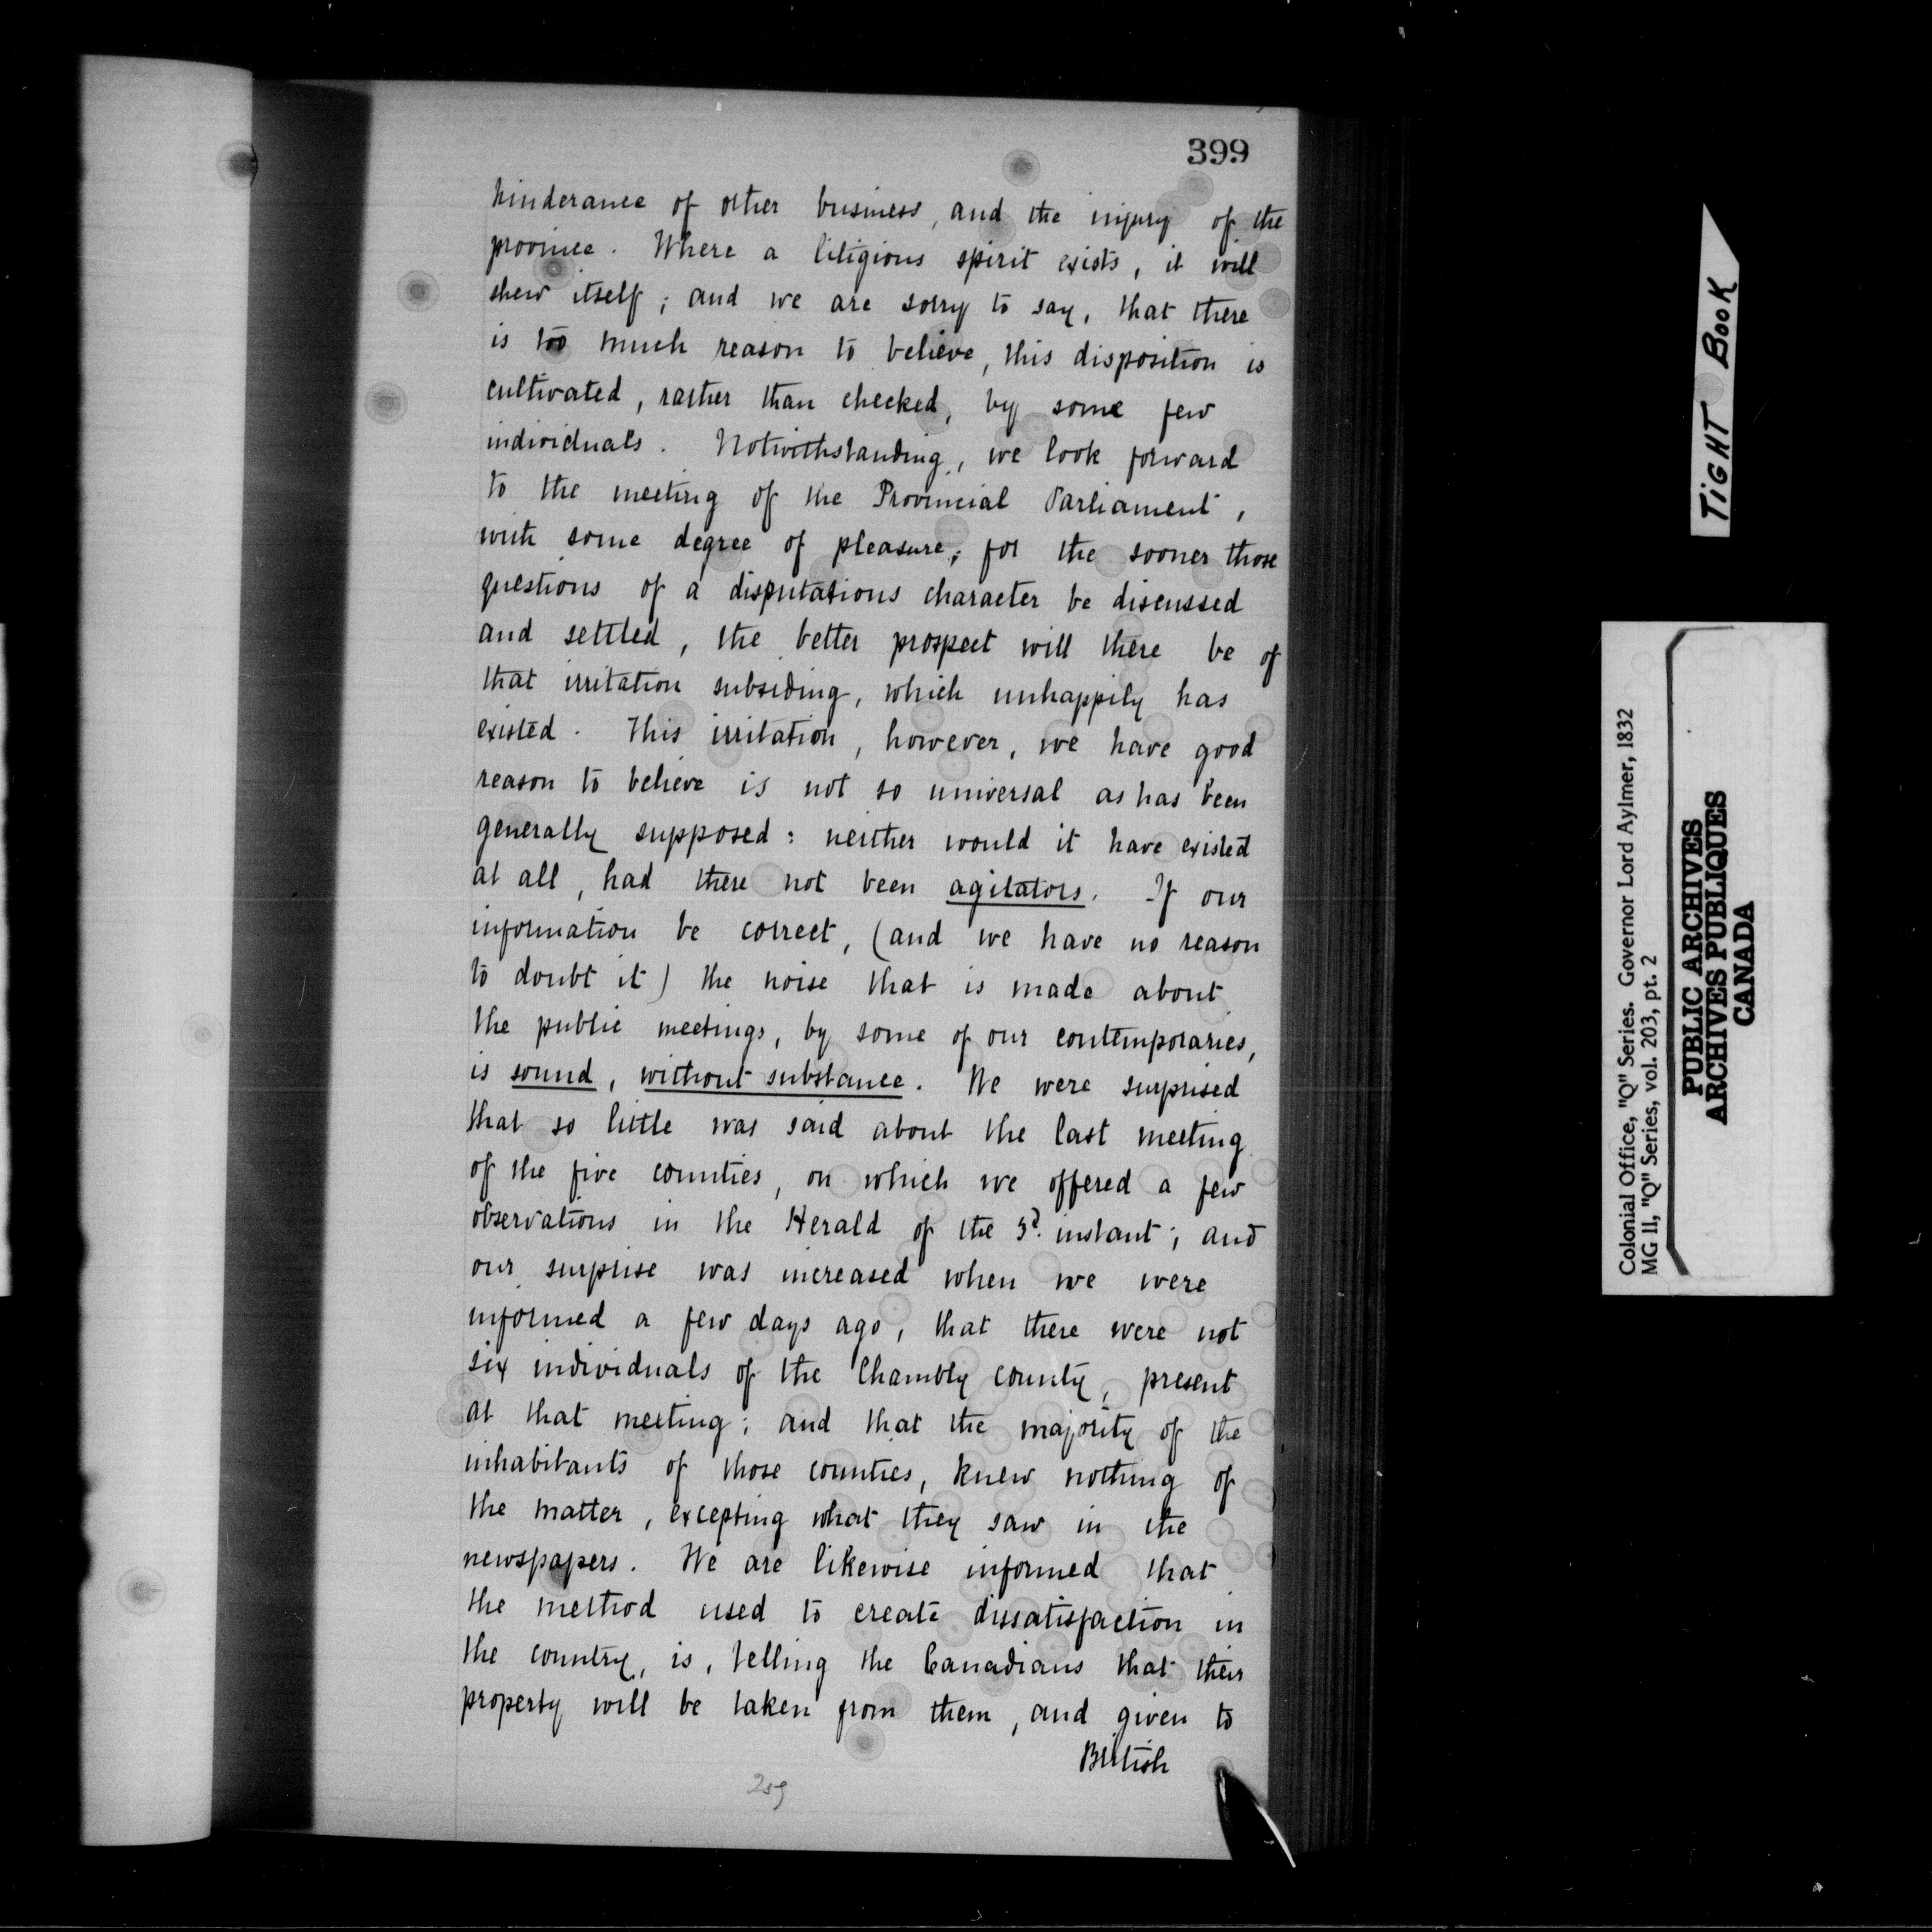 399
hinderance of other business, and the injury of the
province. Where a litigious spirit exists, it will
shew itself; and we are sorry to say, that there
is too much reason to believe, this disposition is
cultivated, rather than checked, by some few
individuals. Notwithstanding, we look forward
to the meeting of the Provincial Parliament,
with some degree of pleasure; for the sooner those
questions of a disputatious character be discussed
and settled, the better prospect will there be of
that irritation subsiding, which unhappily has
existed. This irritation, however, we have good
reason to believe is not so universal as has been
generally supposed: neither would it have existed
at all, had there not been agitators. If our
information be correct, (and we have no reason
to doubt it) the noise that is made about
the public meetings, by some of our contemporaries,
is sound, without substance. We were surprised
that so little was said about the last meeting
of the five counties, on which we offered a few
observations in the Herald of the 3d. instant; and
our surprise was increased when we were
informed a few days ago, that there were not
six individuals of the Chambly county, present
at that meeting; and that the majority of the
inhabitants of those counties, knew nothing of
the matter, excepting what they saw in the
newspapers. We are likewise informed that
the method used to create dissatisfaction in
the country, is, telling the Canadians that their
property will be taken from them, and given to
British
259
TIGHT BOOK
Colonial Office, "Q" Series. Governor Lord Aylmer, 1832
MG 11, "Q" Series, vol. 203, pt. 2
PUBLIC ARCHIVES
ARCHIVES PUBLIQUES
CANADA